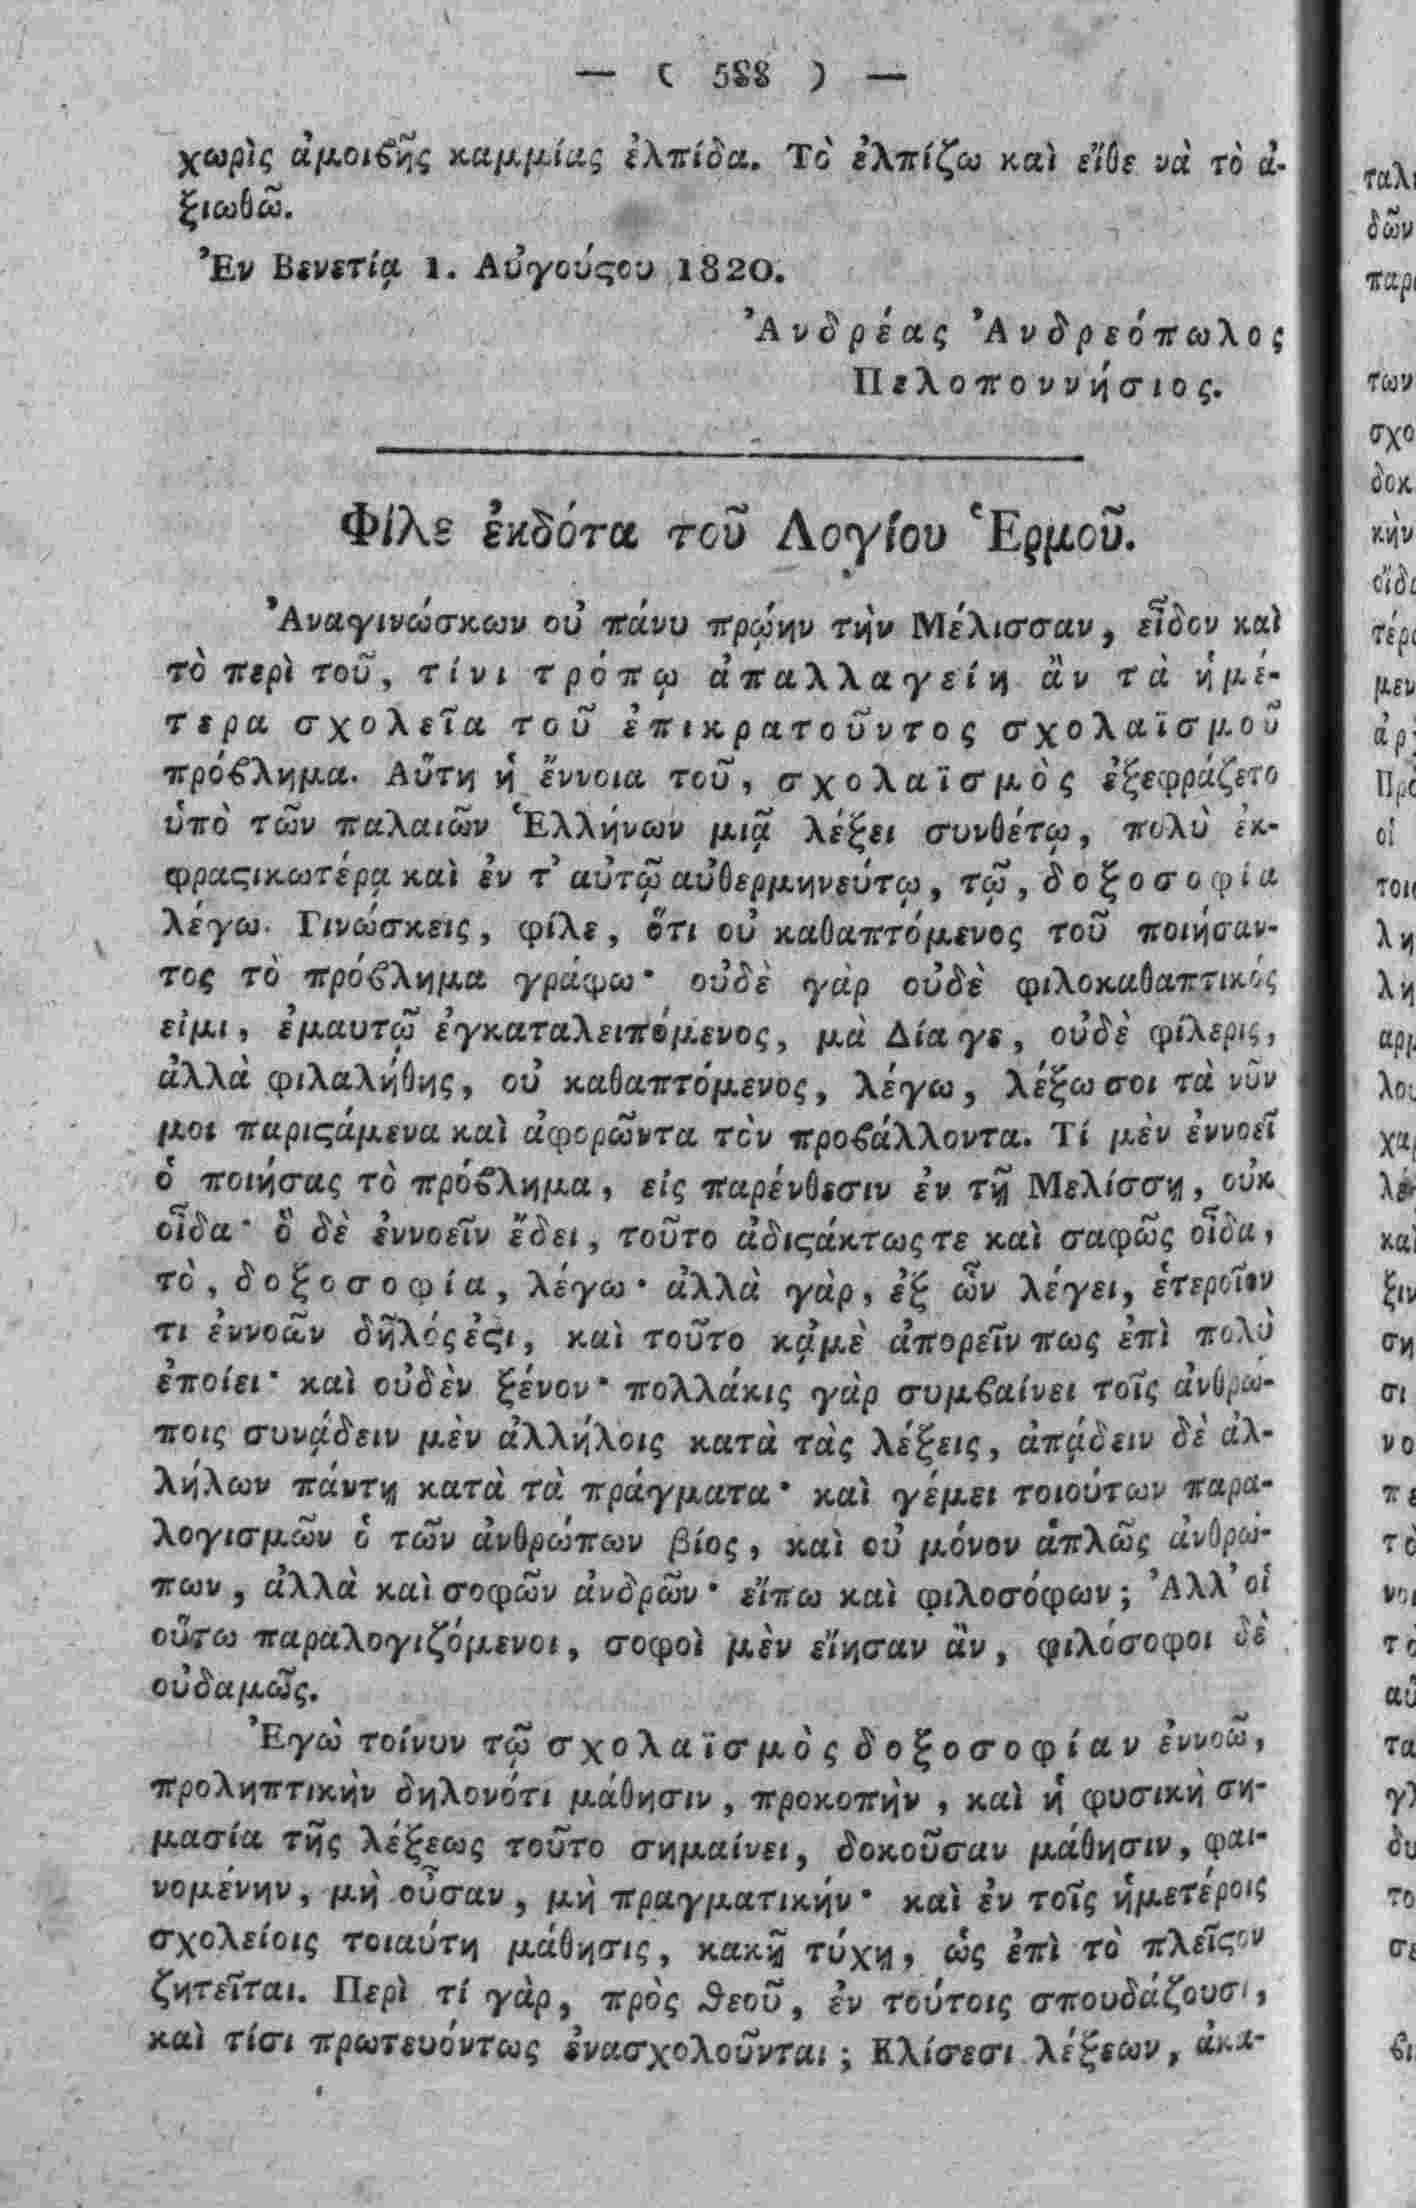 — ( 588 ) —
χωρὶς ἀμοιβῆς καμμίας ἐλπίδα. Τὸ ἐλπίζω καὶ εἴθε νὰ τὸ ἀ-
ξιωθῶ.
Ἐν Βενετίᾳ 1. Αὐγούϛου 1820.
Ἀνδρέας Ἀνδρεόπωλος
Πελοποννήσιος.
Φίλε ἐκδότα τοῦ Λογίου Ἑρμοῦ.
Ἀναγινώσκων οὐ πάνυ πρώην τὴν Μέλισσαν, εἶδον καὶ
τὸ περὶ τοῦ, τίνι τρόπῳ ἀπαλλαγείη ἂν τὰ ἡμέ-
τερα σχολεῖα τοῦ ἐπικρατοῦντος σχολαϊσμοῦ
πρόβλημα. Αὕτη ἡ ἔννοια τοῦ, σχολαϊσμὸς ἐξεφράζετο
ὑπὸ τῶν παλαιῶν Ἑλλήνων μιᾷ λέξει συνθέτῳ, πολὺ ἐκ-
φραϛικωτέρᾳ καὶ ἐν τ' αὐτῷ αὐθερμηνεύτῳ, τῷ, δοξοσοφία
λέγω. Γινώσκεις, φίλε, ὅτι οὐ καθαπτόμενος τοῦ ποιήσαν-
τος τὸ πρόβλημα γράφω· οὐδὲ γὰρ οὐδὲ φιλοκαθαπτικός
εἰμι, ἐμαυτῷ ἐγκαταλειπόμενος, μὰ Δία γε, οὐδὲ φίλερις,
ἀλλὰ φιλαλήθης, οὐ καθαπτόμενος, λέγω, λέξω σοι τὰ νῦν
μοι παριϛάμενα καὶ ἀφορῶντα τὸν προβάλλοντα. Τί μὲν ἐννοεῖ
ὁ ποιήσας τὸ πρόβλημα, εἰς παρένθεσιν ἐν τῇ Μελίσσῃ, οὐκ
οἶδα· ὃ δὲ ἐννοεῖν ἔδει, τοῦτο ἀδιϛάκτως τε καὶ σαφῶς οἶδα,
τὸ, δοξοσοφία, λέγω· ἀλλὰ γὰρ, ἐξ ὧν λέγει, ἑτεροῖον
τι ἐννοῶν δῆλός ἐϛι, καὶ τοῦτο κᾀμὲ ἀπορεῖν πως ἐπὶ πολὺ
ἐποίει· καὶ οὐδὲν ξένον· πολλάκις γὰρ συμβαίνει τοῖς ἀνθρώ-
ποις συνᾴδειν μὲν ἀλλήλοις κατὰ τὰς λέξεις, ἀπᾴδειν δὲ ἀλ-
λήλων πάντῃ κατὰ τὰ πράγματα· καὶ γέμει τοιούτων παρα-
λογισμῶν ὁ τῶν ἀνθρώπων βίος, καὶ οὐ μόνον ἁπλῶς ἀνθρώ-
πων, ἀλλὰ καὶ σοφῶν ἀνδρῶν· εἴπω καὶ φιλοσόφων; Ἀλλ' οἱ
οὕτω παραλογιζόμενοι, σοφοὶ μὲν εἴησαν ἂν, φιλόσοφοι δὲ
οὐδαμῶς.
Ἐγὼ τοίνυν τῷ σχολαϊσμὸς δοξοσοφίαν ἐννοῶ,
προληπτικὴν δηλονότι μάθησιν, προκοπὴν, καὶ ἡ φυσικὴ ση-
μασία τῆς λέξεως τοῦτο σημαίνει, δοκοῦσαν μάθησιν, φαι-
νομένην, μὴ οὖσαν, μὴ πραγματικήν· καὶ ἐν τοῖς ἡμετέροις
σχολείοις τοιαύτη μάθησις, κακῇ τύχῃ, ὡς ἐπὶ τὸ πλεῖϛον
ζητεῖται. Περὶ τί γὰρ, πρὸς ϑεοῦ, ἐν τούτοις σπουδάζουσι,
καὶ τίσι πρωτευόντως ἐνασχολοῦνται; Κλίσεσι λέξεων, ἀκα-